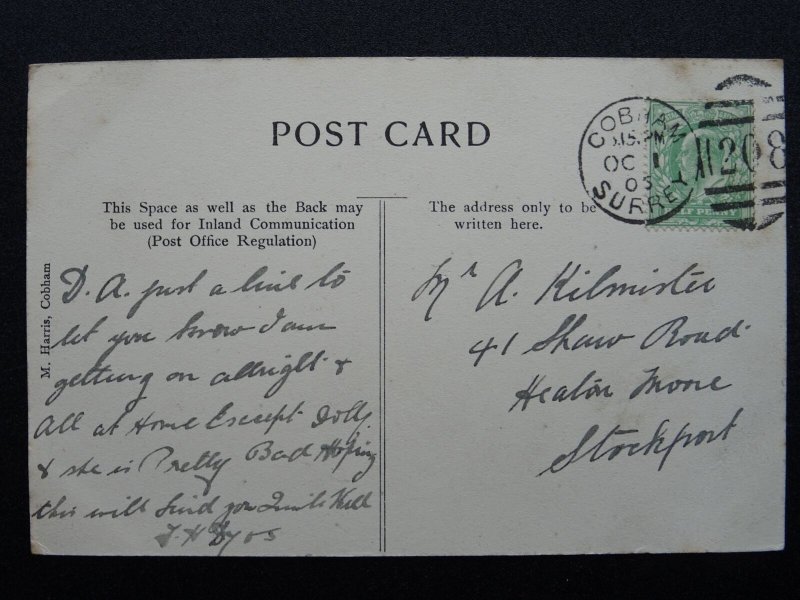 POST CARD
This Space as well as the Back may
be used for Inland Communication
(Post Office Regulation)
The address only to be
written here.
M. Harris, Cobham
COBHAM
OC 1
SURREY
208
HALF PENNY
D. A. just a line to
let you know I am
getting on allright &
all at Home Except Dolly
& she is Pretty Bad Hoping
this will find you Quite Well
Mr A. Kilmister
41 Shaw Road
Heaton Moore
Stockport